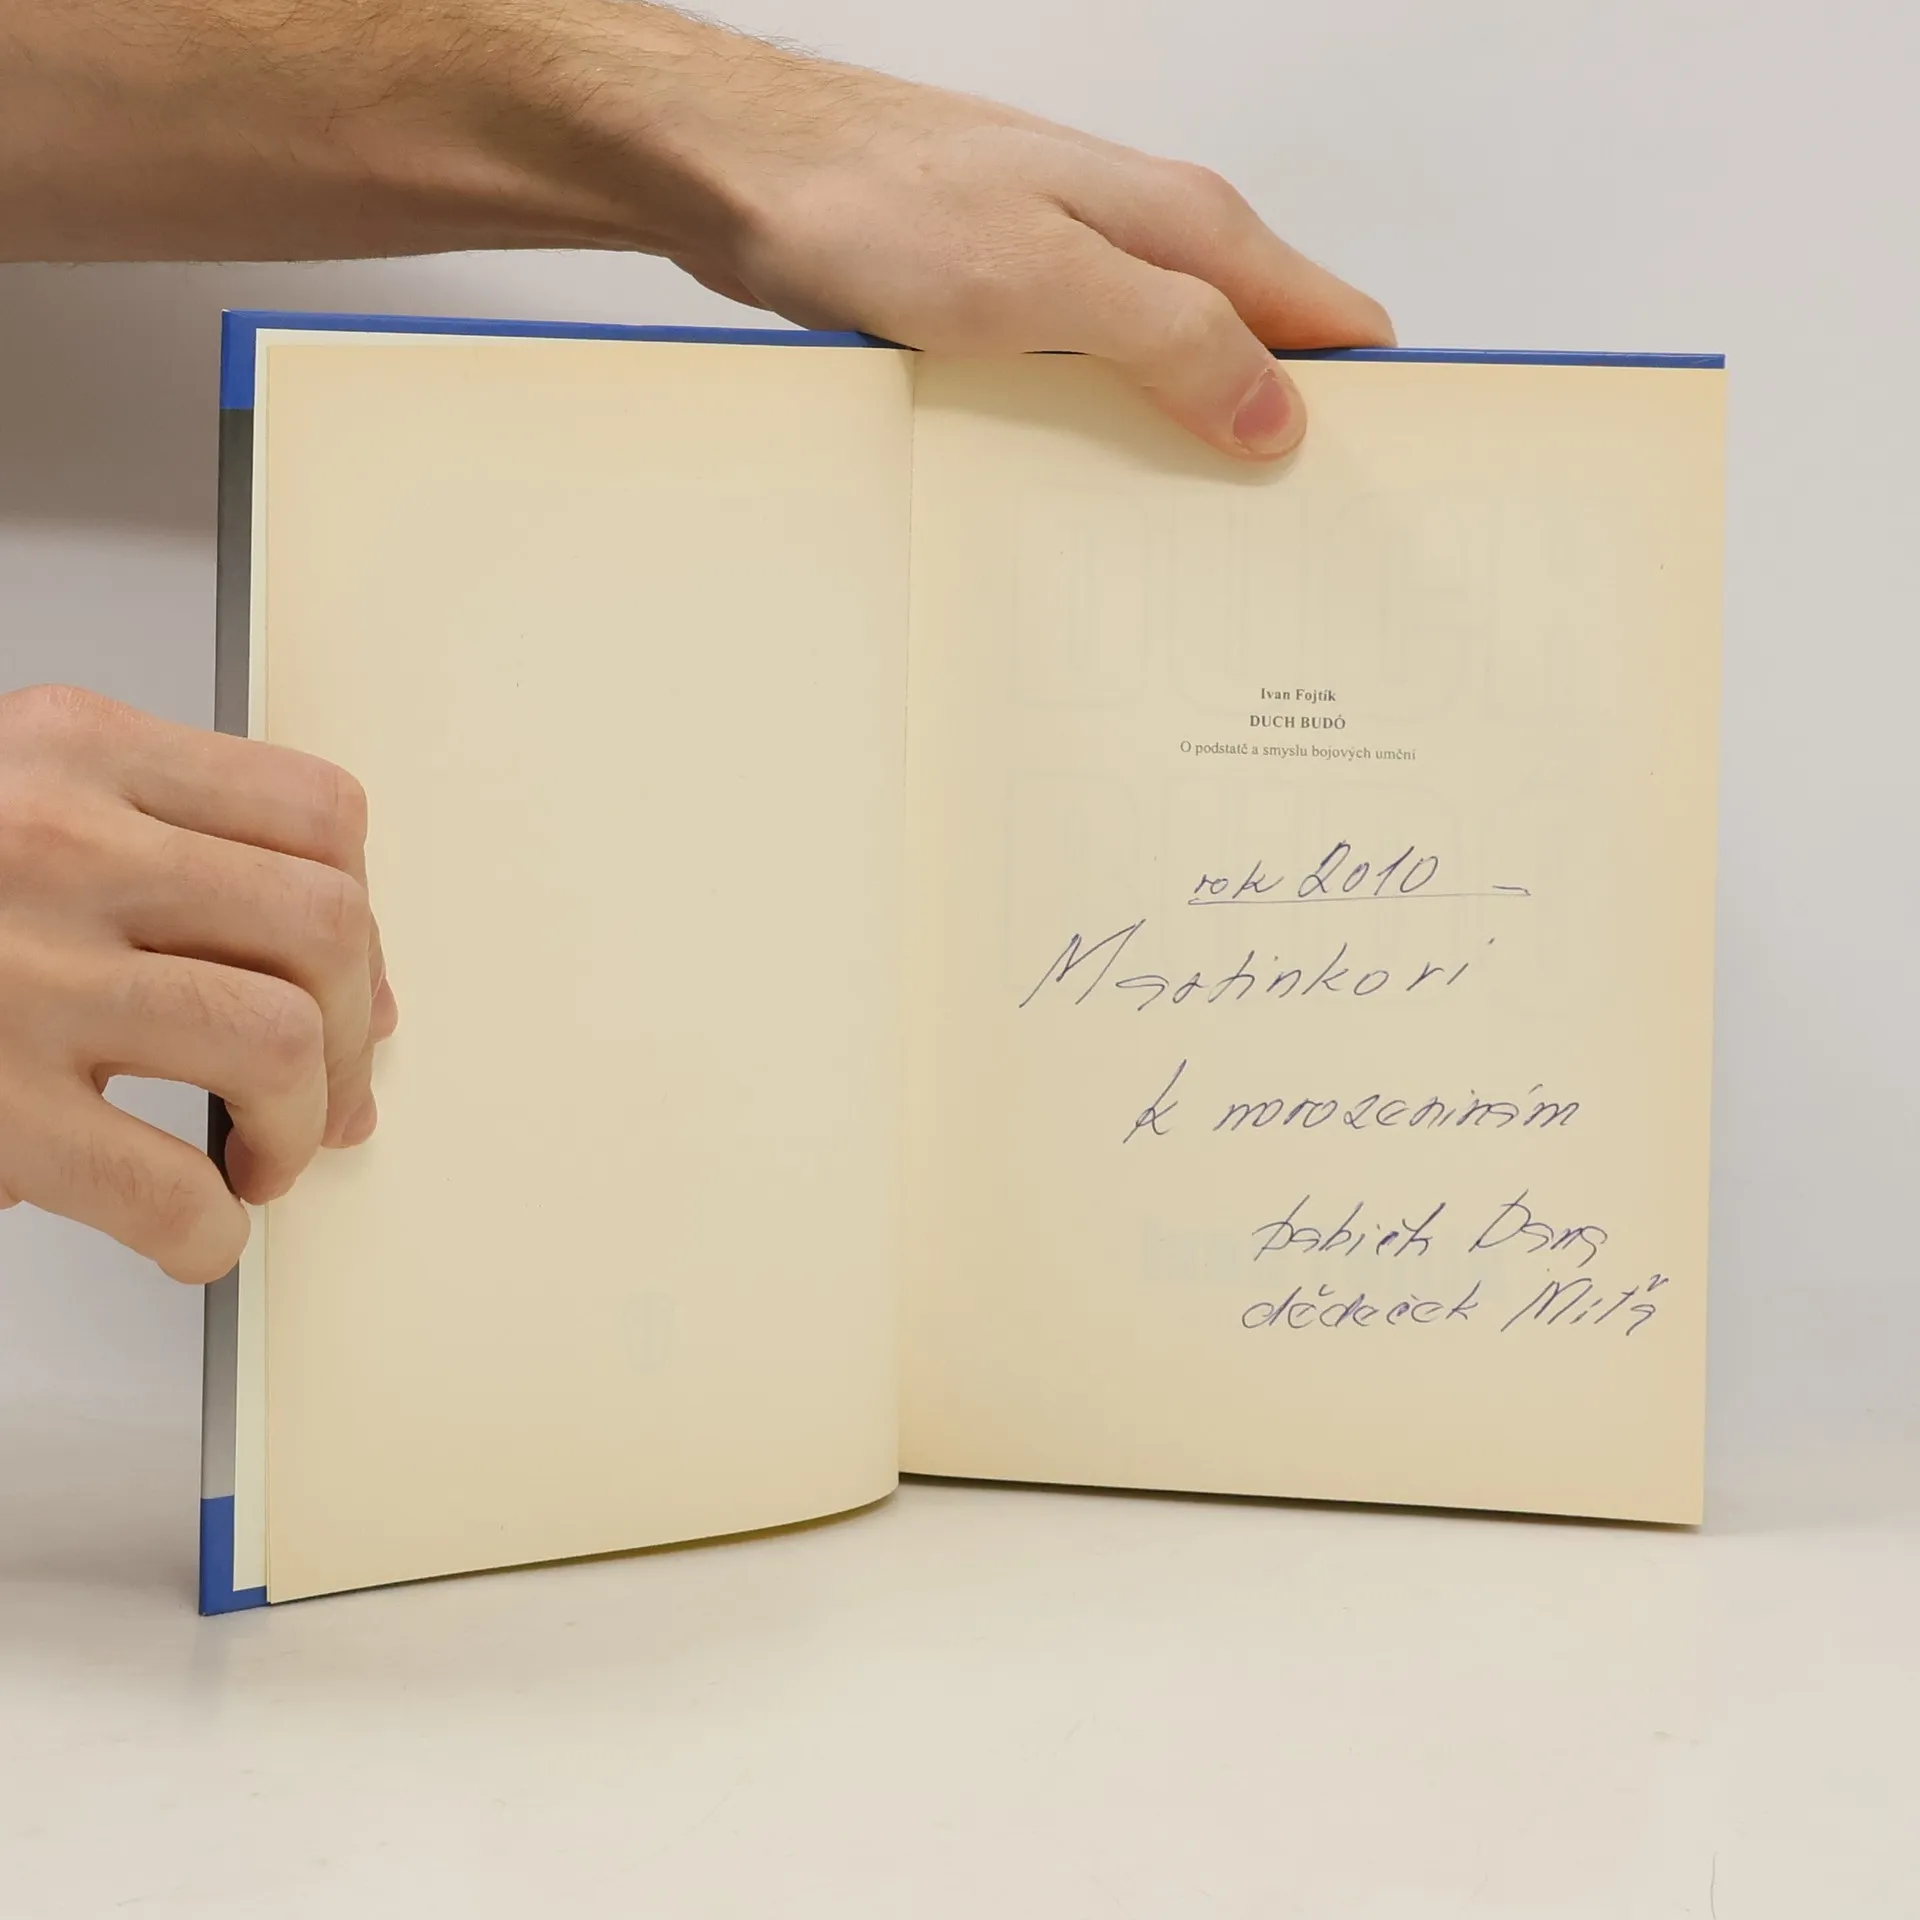 Ivan Fojtík
DUCH BUDÓ
O podstatě a smyslu bojových umění
rok 2010
Martinkovi
k narozeninám
Dana
dědeček